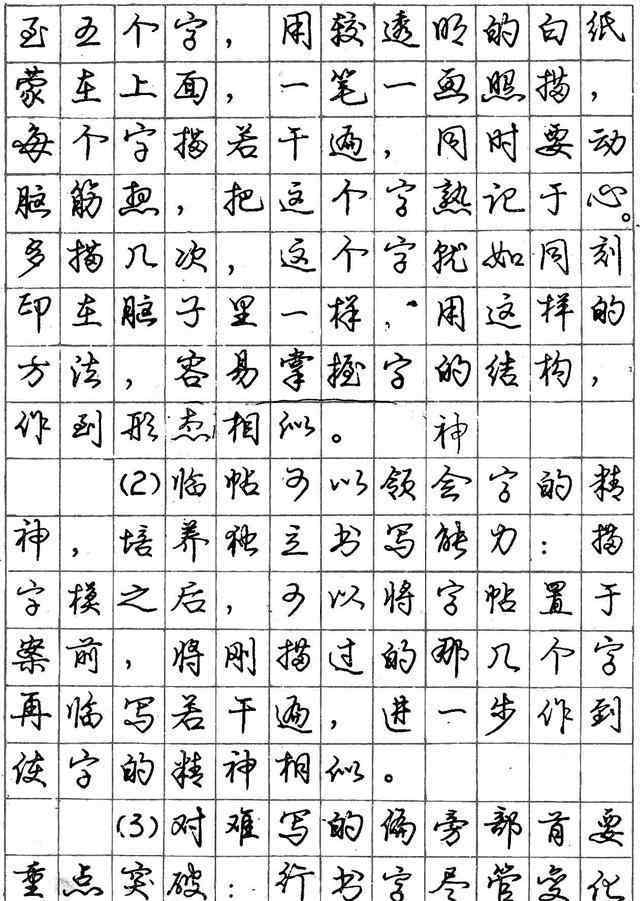 至五个字，用较透明的白纸
蒙在上面，一笔一画照描，
每个字描若干遍，同时要动
脑筋想，把这个字熟记于心。
多描几次，这个字就如同刻
印在脑子里一样，用这样的
方法，容易掌握字的结构，
作到形态相似。 神
(2)临帖可以领会字的精
神，培养独立书写能力：描
字模之后，可以将字帖置于
案前，将刚描过的那几个字
再临写若干遍，进一步作到
使字的精神相似。
(3)对难写的偏旁部首要
重点突破：行书字尽管变化